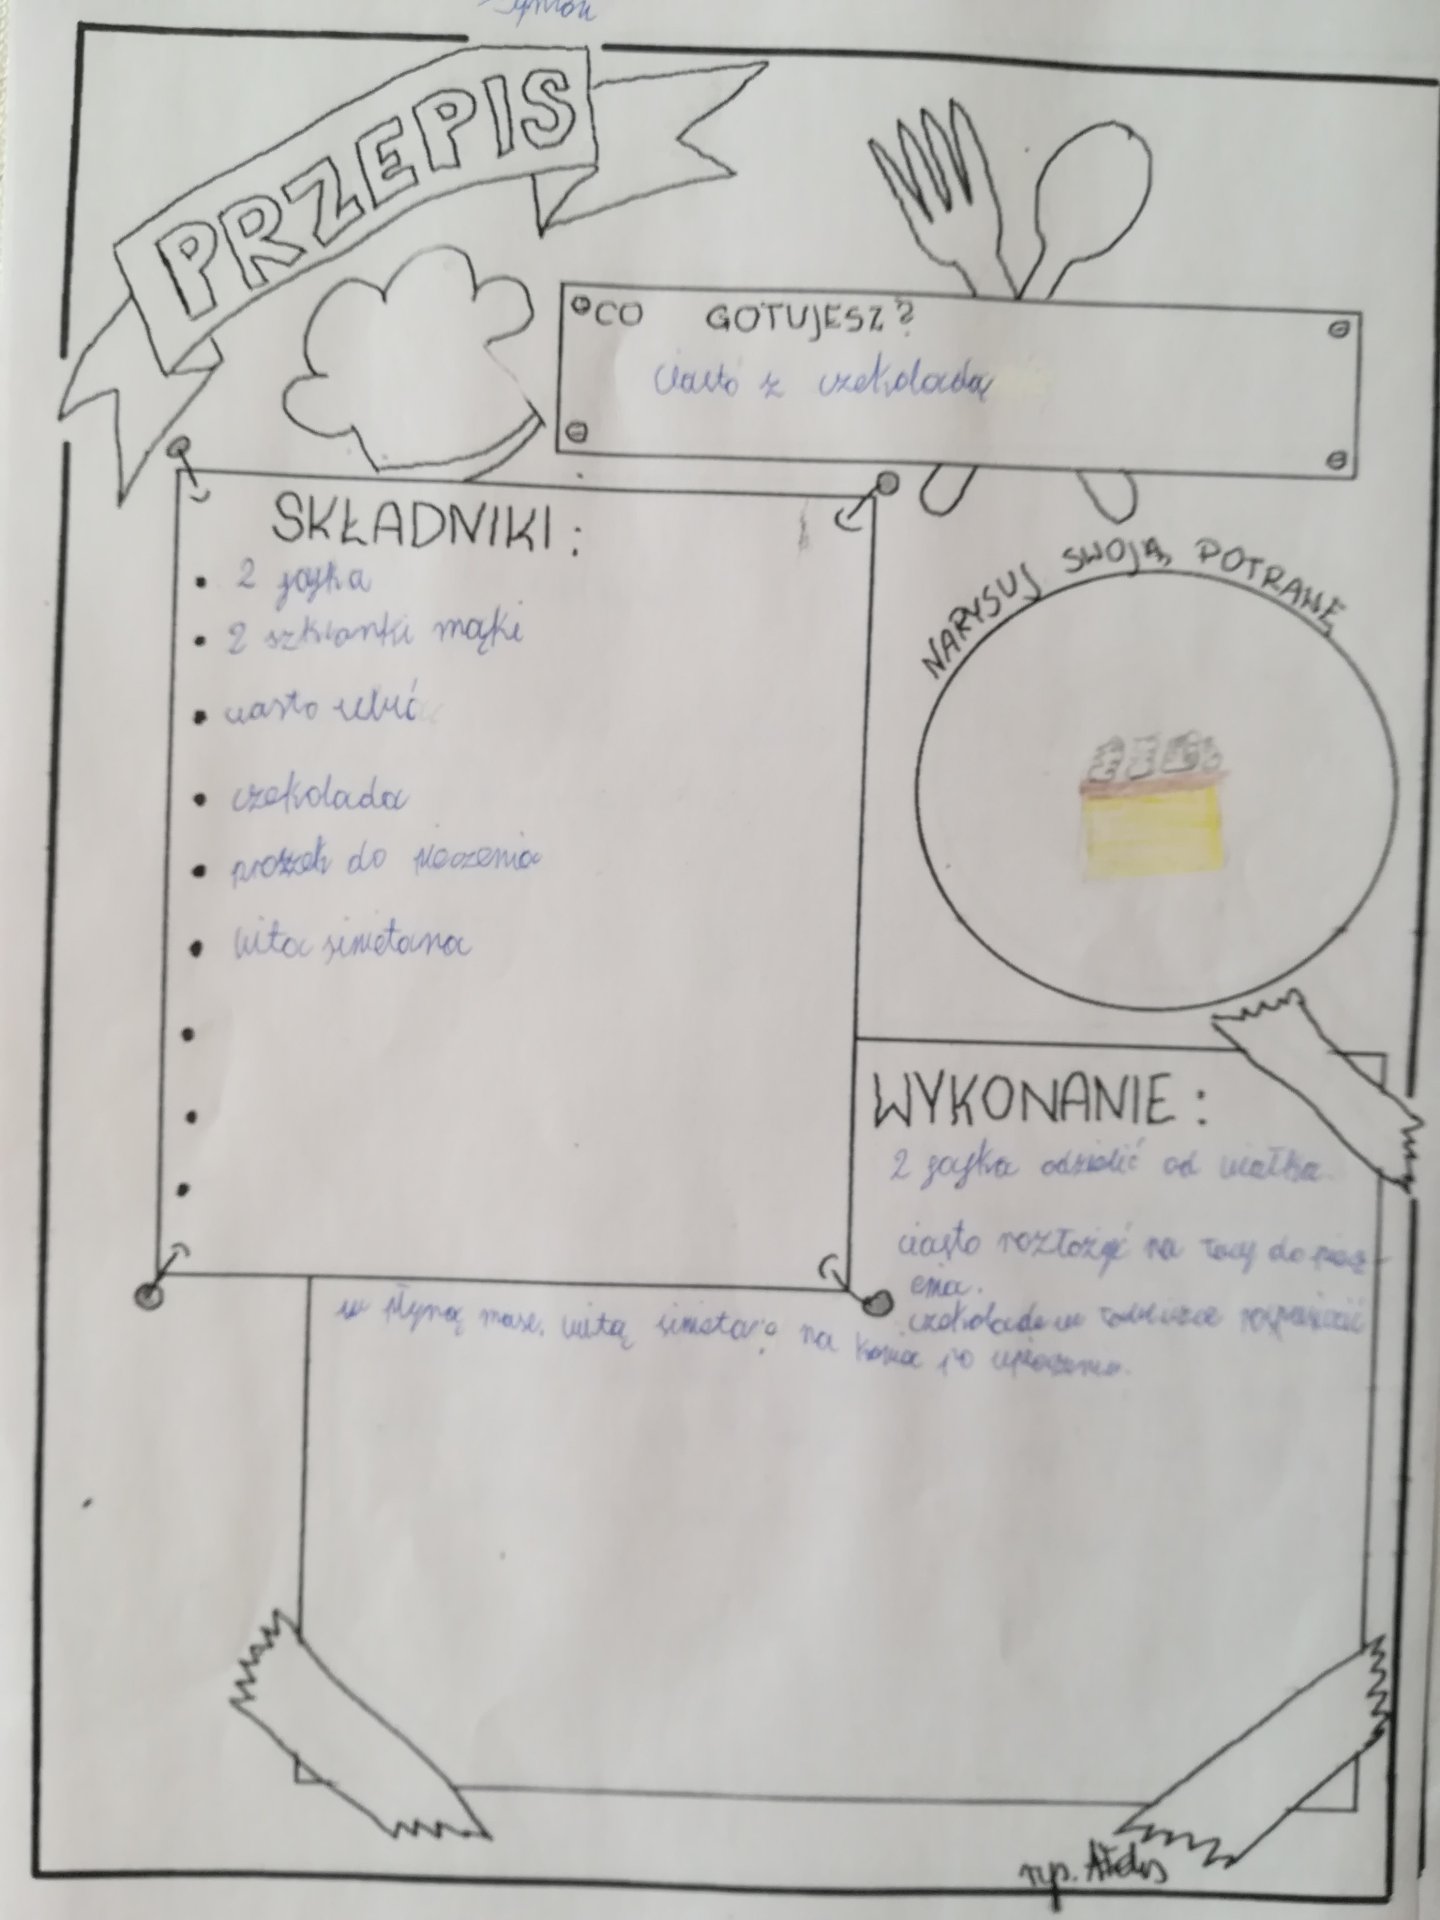 Szymon
PRZEPIS
CO GOTUJESZ?
ciasto z czekoladą
SKŁADNIKI:
2 jajka
2 szklanki mąki
ciasto
czekolada
proszek do pieczenia
bita śmietana
NARYSUJ SWOJĄ POTRAWĘ
WYKONANIE:
2 jajka odzielić od białka.
ciasto rozłożyć na tacy do piecz-
enia.
czekolade w rozpuścić
w płyną mase. bitą śmietanę na koniec po upieczeniu.
rys.